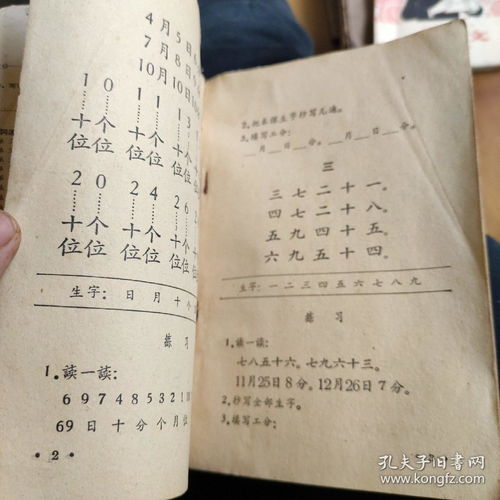 4月5日
7月8日
10月10日
10 11 13
十位 个位 十位 个位 十位
20 24 26
十位 个位 十位 个位 十位
生字: 日 月 十 个
练 习
1.读一读:
6 9 7 4 8 5 3 2 1
69 日 十 分 个 月 位
·2·
2.把本课生字抄写几遍。
3.填写工分:
__月__日__分。__月__日__分。
三
三七二十一。
四七二十八。
五九四十五。
六九五十四。
生字: 一 二 三 四 五 六 七 八 九
练 习
1.读一读:
七八五十六。七九六十三。
11月25日8分。12月26日7分。
2.抄写全部生字。
3.填写工分:
孔夫子旧书网
kongfz.com